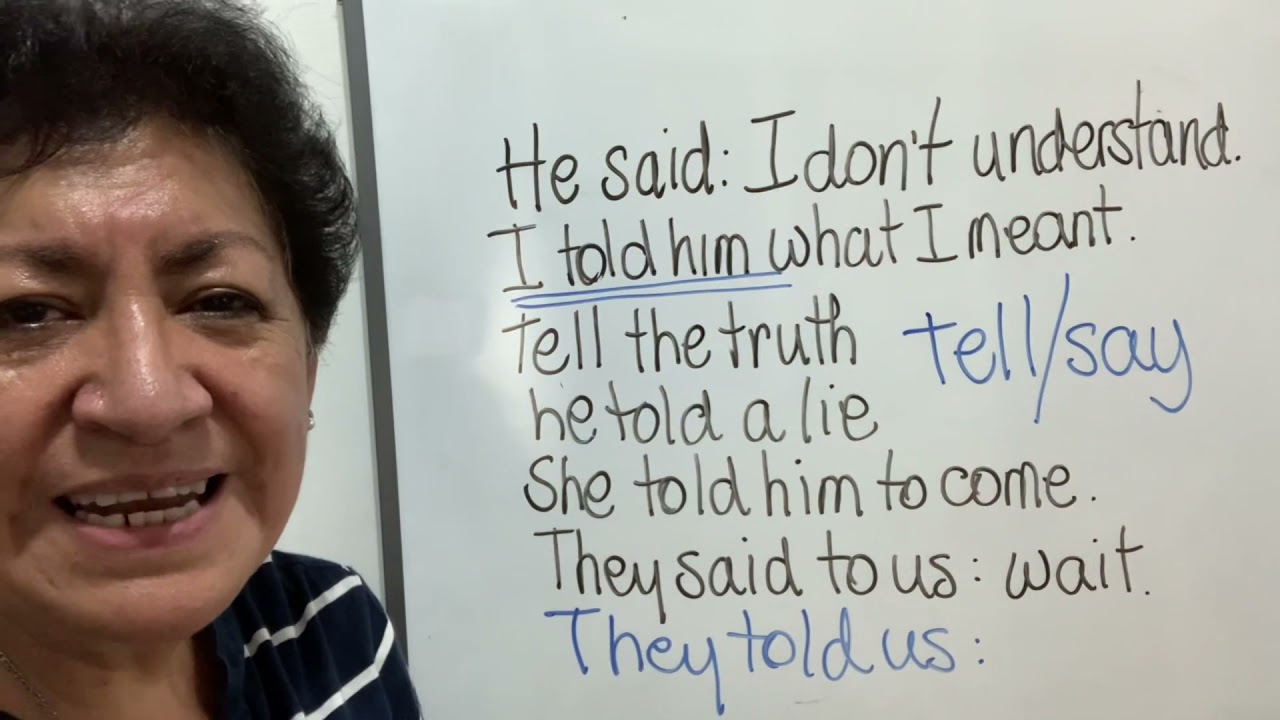 He said: I don't understand.
I told him what I meant.
tell the truth
tell/say
he told a lie
She told him to come.
They said to us: wait.
They told us: